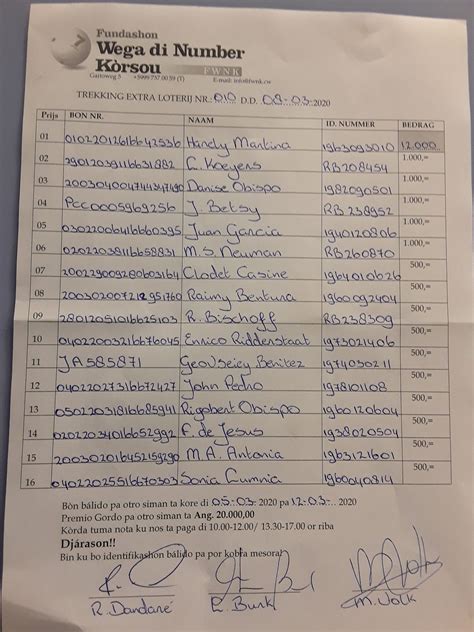 Fundashon
Wega di Number
Kòrsou
FWNK
Gaitoweg 5 +5999 737 00 59 (T) E-mail: info@fwnk.cw
TREKKING EXTRA LOTERIJ NR. 010 D.D. 08-03-2020
Prijs BON NR. NAAM ID. NUMMER BEDRAG
01 Handy Martina 1963093010 12.000
02 C. Koeyers RB208454 1.000,=
03 Danise Obispo 1982090501 1.000,=
04 PCC0005969256 J. Betsy RB238952 1.000,=
05 Juan Garcia 1940120806 1.000,=
06 02022038116658831 M.S. Neuman RB260870 1.000,=
07 Clodet Casine 1964010626 500,=
08 Raimy Bentura 1960092404 500,=
09 2801205101662 5103 R. Bischoff RB238309 500,=
10 Enrico Riddenstaat 1973021406 500,=
11 JA585871 Benitez 1974030211 500,=
12 0402202731667 2427 John Pedro 1978101108 500,=
13 0502203181668 5941 Rigobert Obispo 1960120604 500,=
14 0202203401665 2992 F. de Jesus 1938020504 500,=
15 M.A. Antonia 1963121601 500,=
16 0402202551667 0303 Sonia Cumnia 1960040814 500,=
Bòn bálido pa otro siman ta kore di 05-03- 2020 pa 12-03- 2020
Premio Gordo pa otro siman ta Ang. 20.000,00
Kòrda tuma nota ku nos ta paga di 10.00-12.00/ 13.30-17.00 or riba
Djárason!!
Bin ku bo identifikashon bálido pa por kobra mesora!
R. Dandané E. Bunk M. Volk